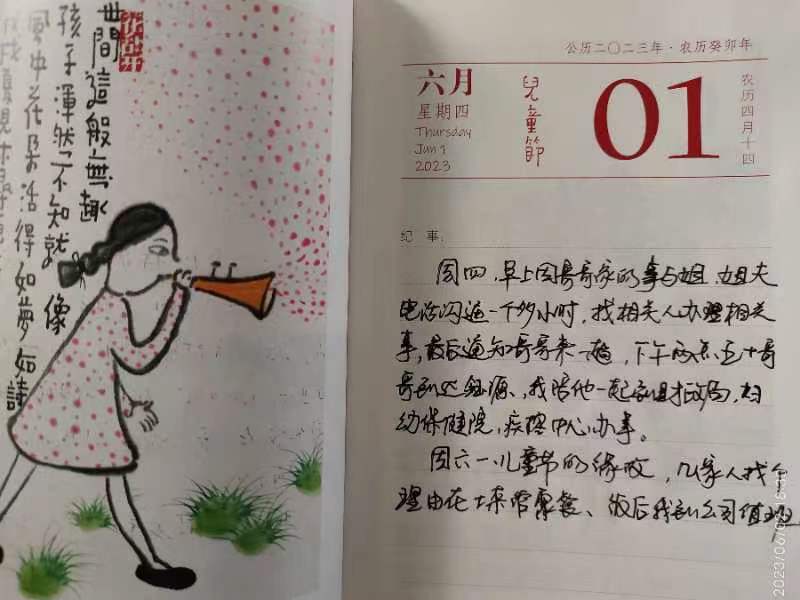 世間這般無趣
孩子渾然不知就像
風中花朵活得如夢如詩
公历二〇二三年·农历癸卯年
六月
星期四
Thursday
Jun 1
2023
兒童節
01
农历四月十四
纪 事:
周四,早上因哥哥家的事与姐、姐夫
电话沟通一个多小时,找相关人办理相关
事,最后通知哥哥来一趟,下午两点五十哥
哥到达,我陪他一起到财政局,妇
幼保健院,疾控中心办事。
因六一儿童节的缘故,几家人找个
理由在聚餐、饭后我到公司值班
2023/06/0